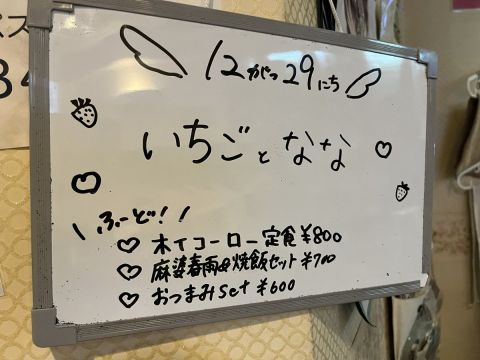 12がつ29にち
いちごとなな
\ふーど!!
♡ ホイコーロー定食 ¥800
♡ 麻婆春雨&焼飯セット ¥700
♡ おつまみset ¥600